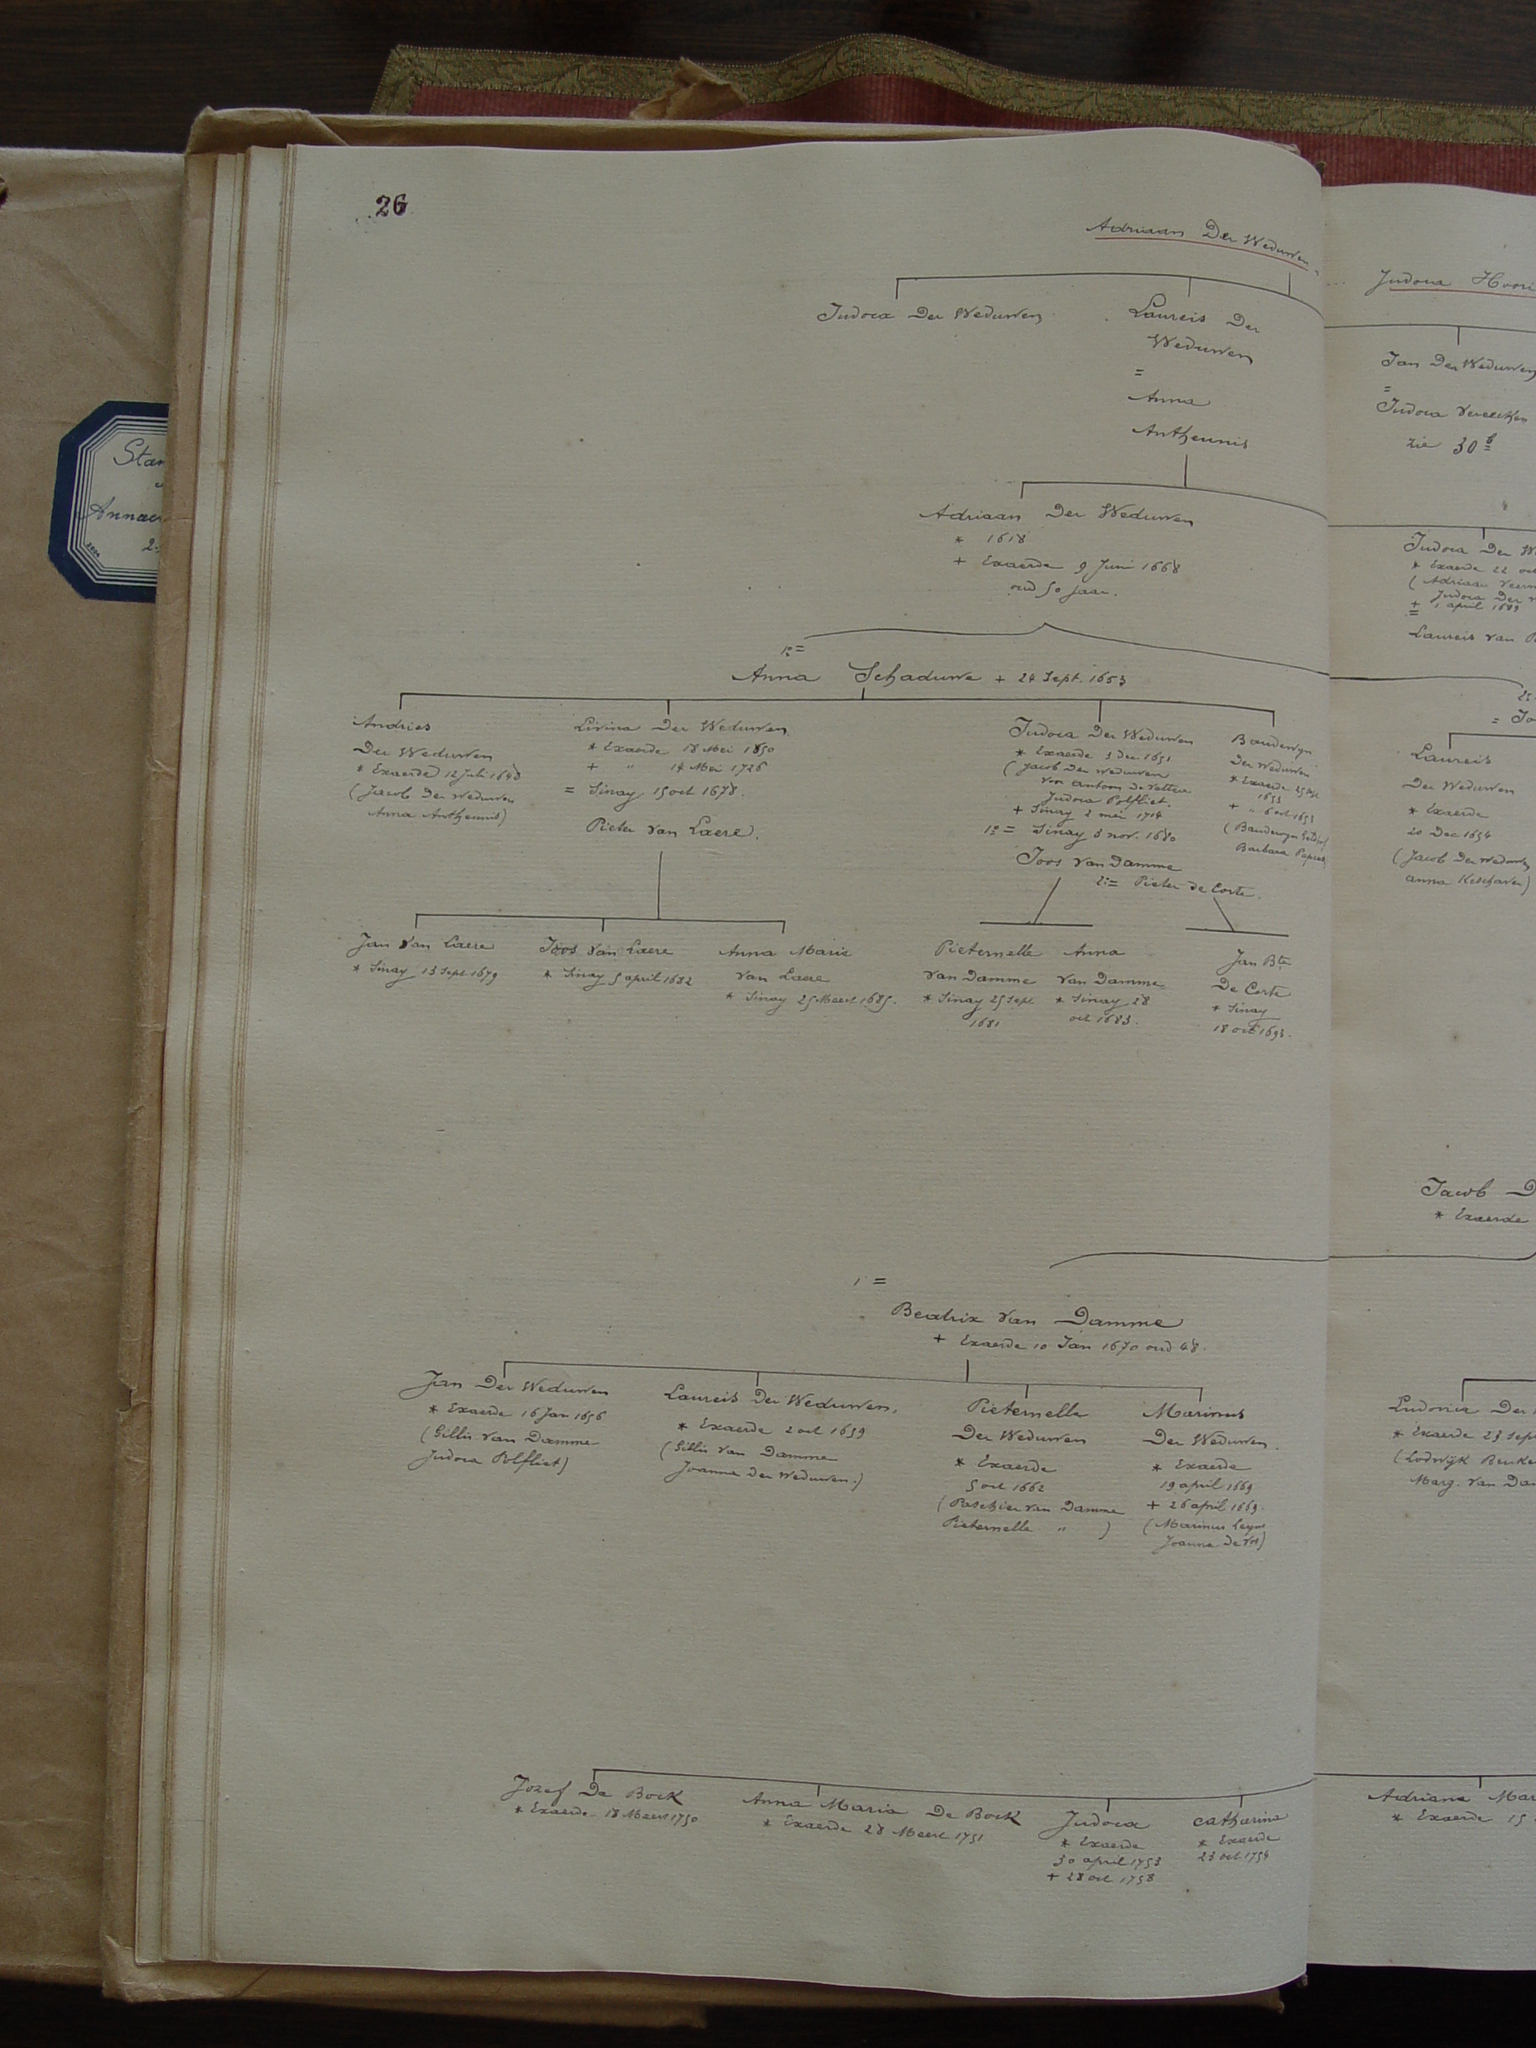 26
Adriaan Der Weduwen
Judoca Der Weduwen
Laureis Der
Weduwen
=
Anna
Antheunis
Adriaan Der Weduwen
* 1618
+ Exaerde 9 Juni 1668
oud 50 jaar.
1° =
Anna Schaduwe + 24 Sept. 1653
Andries
Der Weduwen
* Exaerde 12 Juli 1648
(Jacob Der Weduwen
Anna Antheunis)
Livina Der Weduwen
* Exaerde 18 Mei 1650
+ " 14 Mei 1726
= Sinay 15 oct 1678.
Pieter van Laere.
Judoca Der Weduwen
* Exaerde 3 Dec. 1651
(Jacob Der Weduwen
voor Antoon De
Judoca Polfliet.
+ Sinay 2 mei 1714
1° = Sinay 3 nov. 1680
Joos Van Damme
2° = Pieter de Corte.
Boudewyn
Der Weduwen
* Exaerde
1653
+ " 6 oct 1653
(Boudewyn
Barbara
Jan Van Laere
* Sinay 13 Sept 1679
Joos Van Laere
* Sinay 5 april 1682
Anna Marie
Van Laere
* Sinay 25 Meert 1685.
Pieternelle
Van Damme
* Sinay 25 Sept
1681
Anna
Van Damme
* Sinay 28
oct 1683.
Jan Bte
De Corte
* Sinay
18 oct 1693.
1 =
Beatrix Van Damme
+ Exaerde 10 Jan 1670 oud 48.
Jan Der Weduwen
* Exaerde 16 Jan 1656
(Gillis Van Damme
Judoca Polfliet)
Laureis Der Weduwen,
* Exaerde 2 oct 1659
(Gillis Van Damme
Joanna Der Weduwen.)
Pieternelle
Der Weduwen
* Exaerde
5 oct 1662
(Paschier van Damme
Pieternelle " )
Marinus
Der Weduwen.
* Exaerde
19 april 1669
+ 26 april 1669.
(Marinus
Joanna De
Jozef De Bock
* Exaerde 18 Meert 1750
Anna Maria De Bock
* Exaerde 28 Meert 1751
Judoca
* Exaerde
30 april 1753
+ 28 oct 1758
Catharina
* Exaerde
23 oct. 1754
Judoca
Jan Der Weduwen
=
Judoca Vereecken
zie 30
Judoca Der
* Exaerde 22 oct
(Adriaan
Judoca Der
+ 1 april 1689
=
Laureis van
Laureis
Der Weduwen
* Exaerde
20 Dec 1654
(Jacob Der Weduwen
Anna
Jacob
* Exaerde
Der
* Exaerde 23 Sept
(Lodwijk
Marg. Van
Adriana
* Exaerde 15